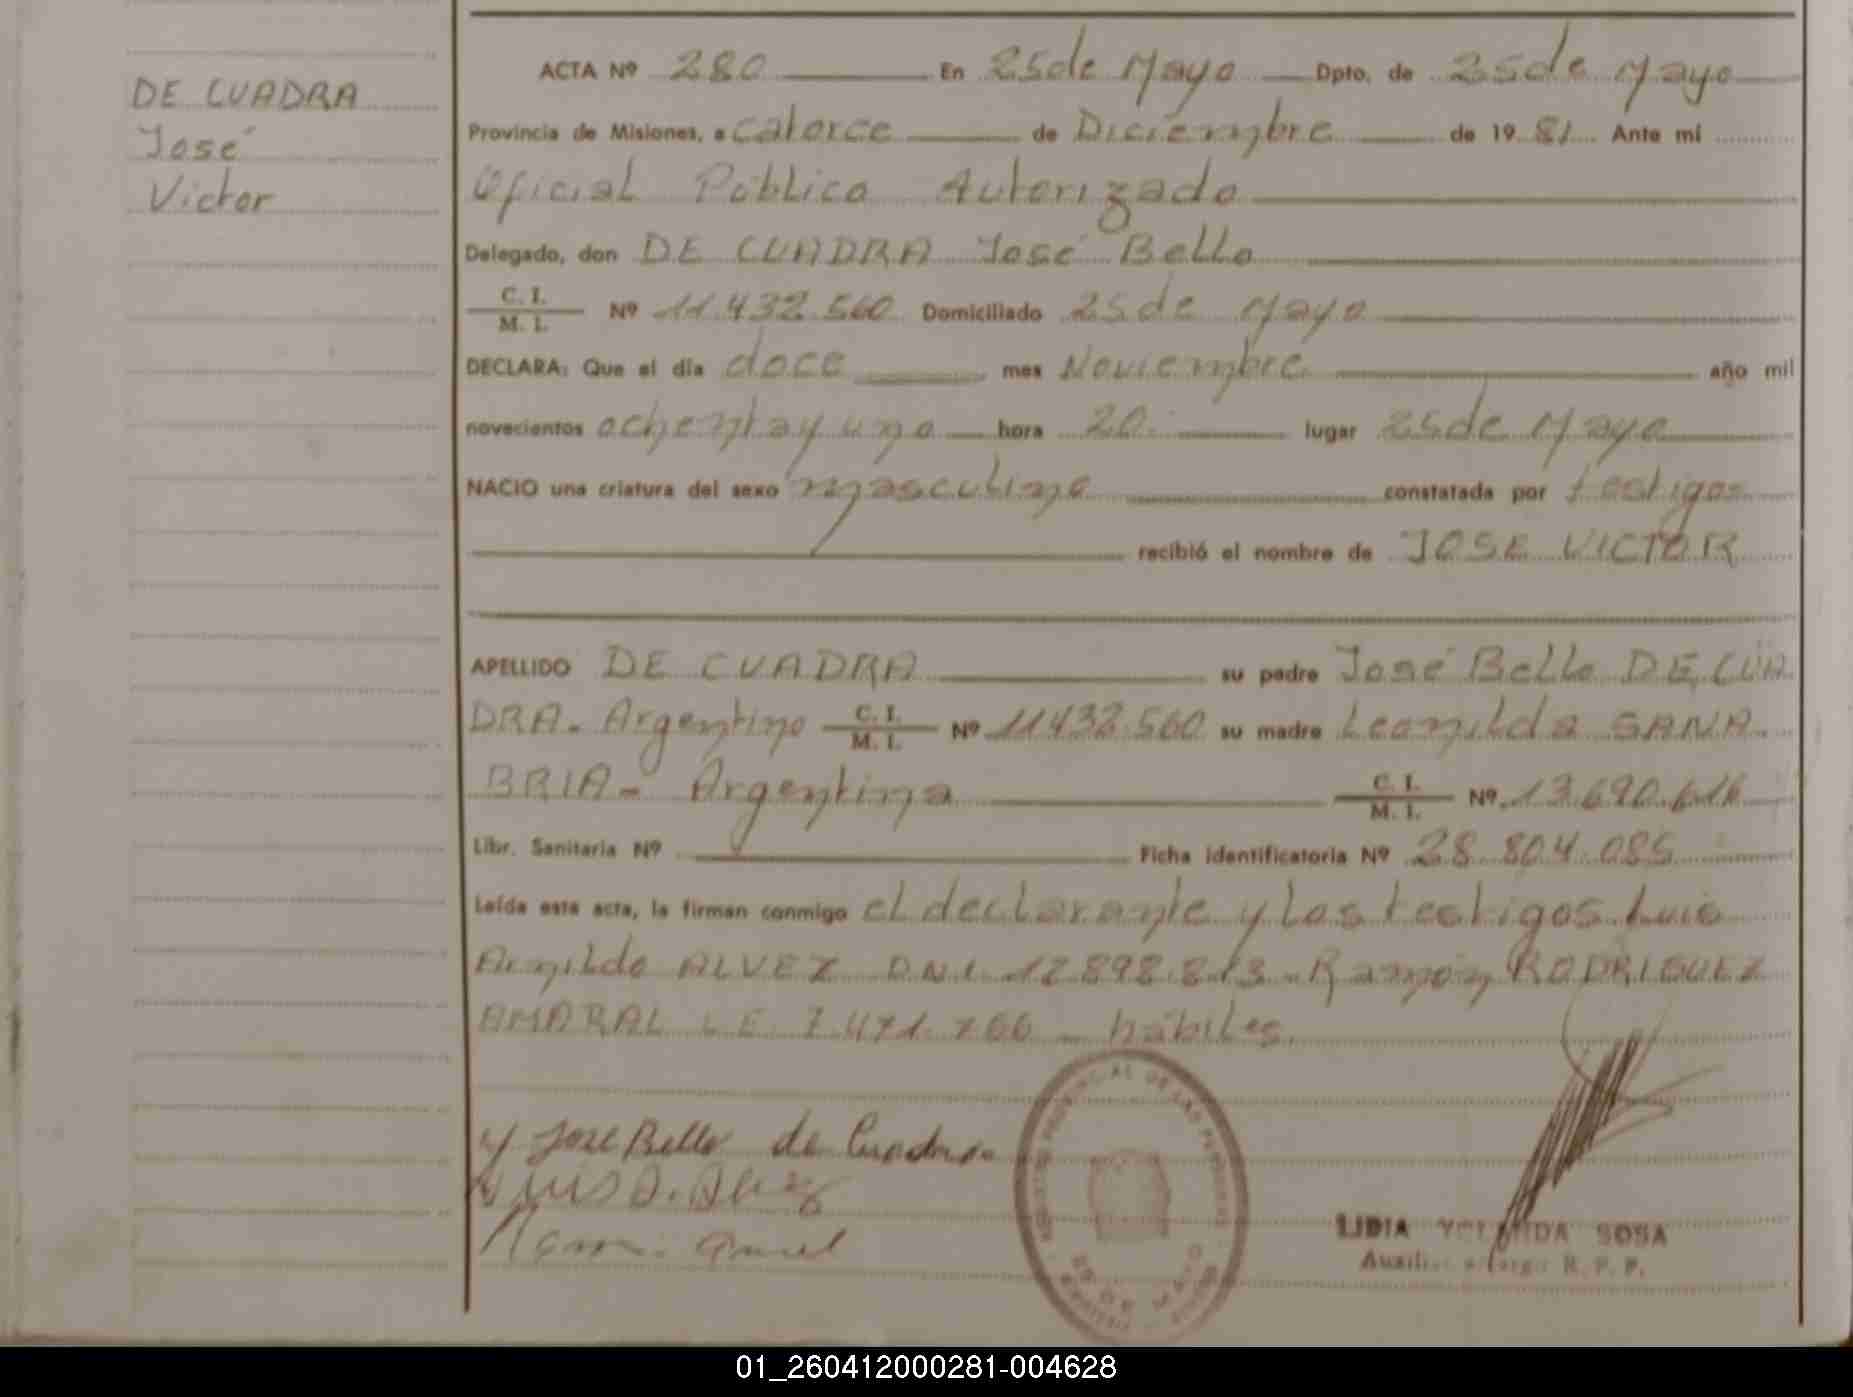 DE CUADRA
José
Victor
ACTA Nº 280 En 25 de Mayo Dpto. de 25 de Mayo
Provincia de Misiones, a catorce de Diciembre de 19 81 Ante mí
Oficial Público Autorizado
Delegado, don DE CUADRA José Bello
C. I. / M. I. Nº 11.432.560 Domiciliado 25 de Mayo
DECLARA: Que el día doce mes Noviembre año mil
novecientos ochenta y uno hora 20. lugar 25 de Mayo
NACIO una criatura del sexo masculino constatada por testigos
recibió el nombre de JOSE VICTOR
APELLIDO DE CUADRA su padre José Bello DE CUA
DRA. Argentino C. I. / M. I. Nº 11.432.560 su madre Leonilda SANA
BRIA - Argentina C. I. / M. I. Nº 13.690.616
Libr. Sanitaria Nº Ficha identificatoria Nº 28.804.085
Leída esta acta, la firman conmigo el declarante y los testigos Luis
Arnildo ALVEZ D.N.I. 12.898.813 - Ramón RODRIGUEZ
AMARAL L.E. 7.471.766 - hábiles.
José Bello de Cuadra
Luis A. Alvez
25 DE MAYO
LIDIA YOLANDA SOSA
R. P. P.
01_260412000281-004628